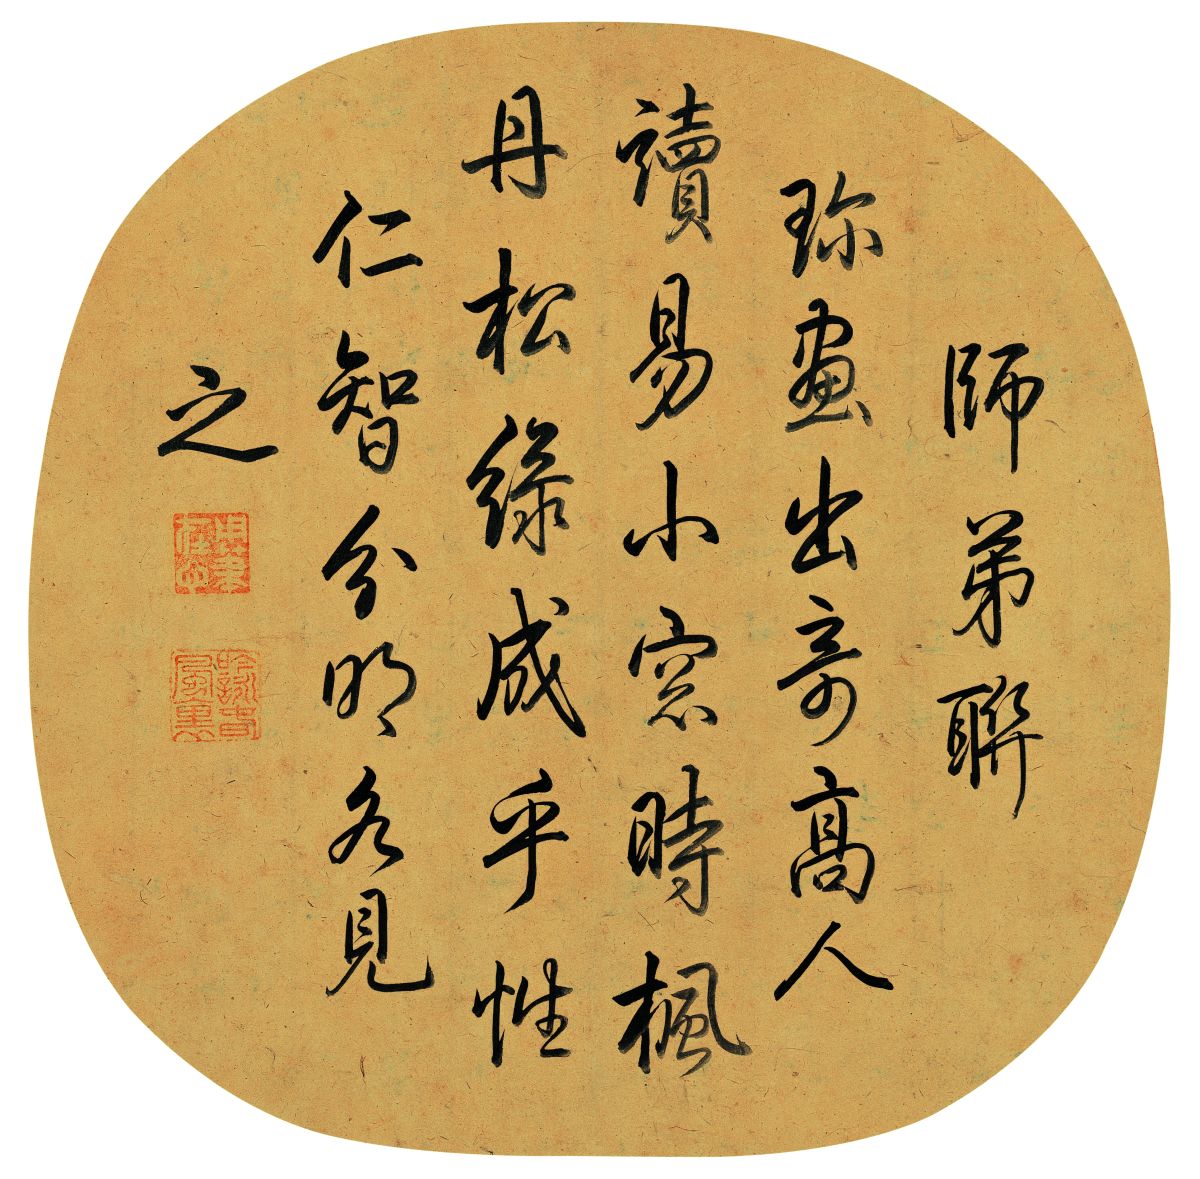 師弟聯
珎畫出奇高人
讀易小窓時楓
丹松緑成乎性
仁智分明各見
之